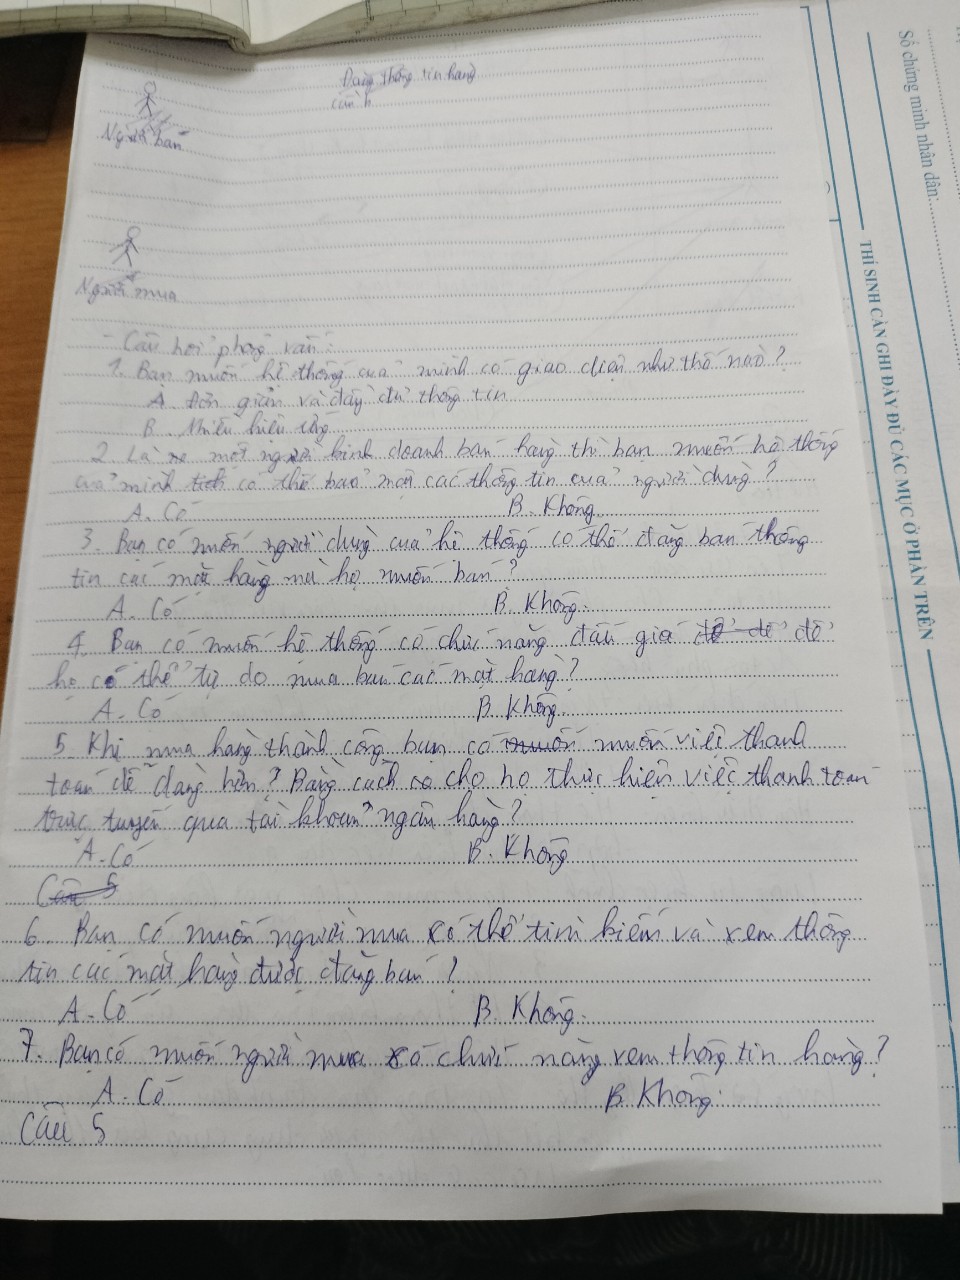 Đăng thông tin hàng
cần b
Người bán
Người mua
- Câu hỏi phỏng vấn:
1. Bạn muốn hệ thống của mình có giao diện như thế nào?
A. Đơn giản và đầy đủ thông tin
B. Nhiều hiệu ứng
2. Là một người kinh doanh bán hàng thì bạn muốn hệ thống
của mình có thể bảo mật các thông tin của người dùng?
A. Có B. Không.
3. Bạn có muốn người dùng của hệ thống có thể đăng bán thông
tin các mặt hàng mà họ muốn bán?
A. Có B. Không.
4. Bạn có muốn hệ thống có chức năng đấu giá để
họ có thể tự do mua bán các mặt hàng?
A. Có B. Không.
5. Khi mua hàng thành công bạn có muốn muốn việc thanh
toán dễ dàng hơn? Bằng cách cho họ thực hiện việc thanh toán
trực tuyến qua tài khoản ngân hàng?
A. Có B. Không
Câu 5
6. Bạn có muốn người mua có thể tìm kiếm và xem thông
tin các mặt hàng được đăng bán?
A. Có B. Không.
7. Bạn có muốn người mua có chức năng xem thông tin hàng?
A. Có B. Không.
Câu 5
Số chứng minh nhân dân:
THÍ SINH CẦN GHI ĐẦY ĐỦ CÁC MỤC Ở PHẦN TRÊN